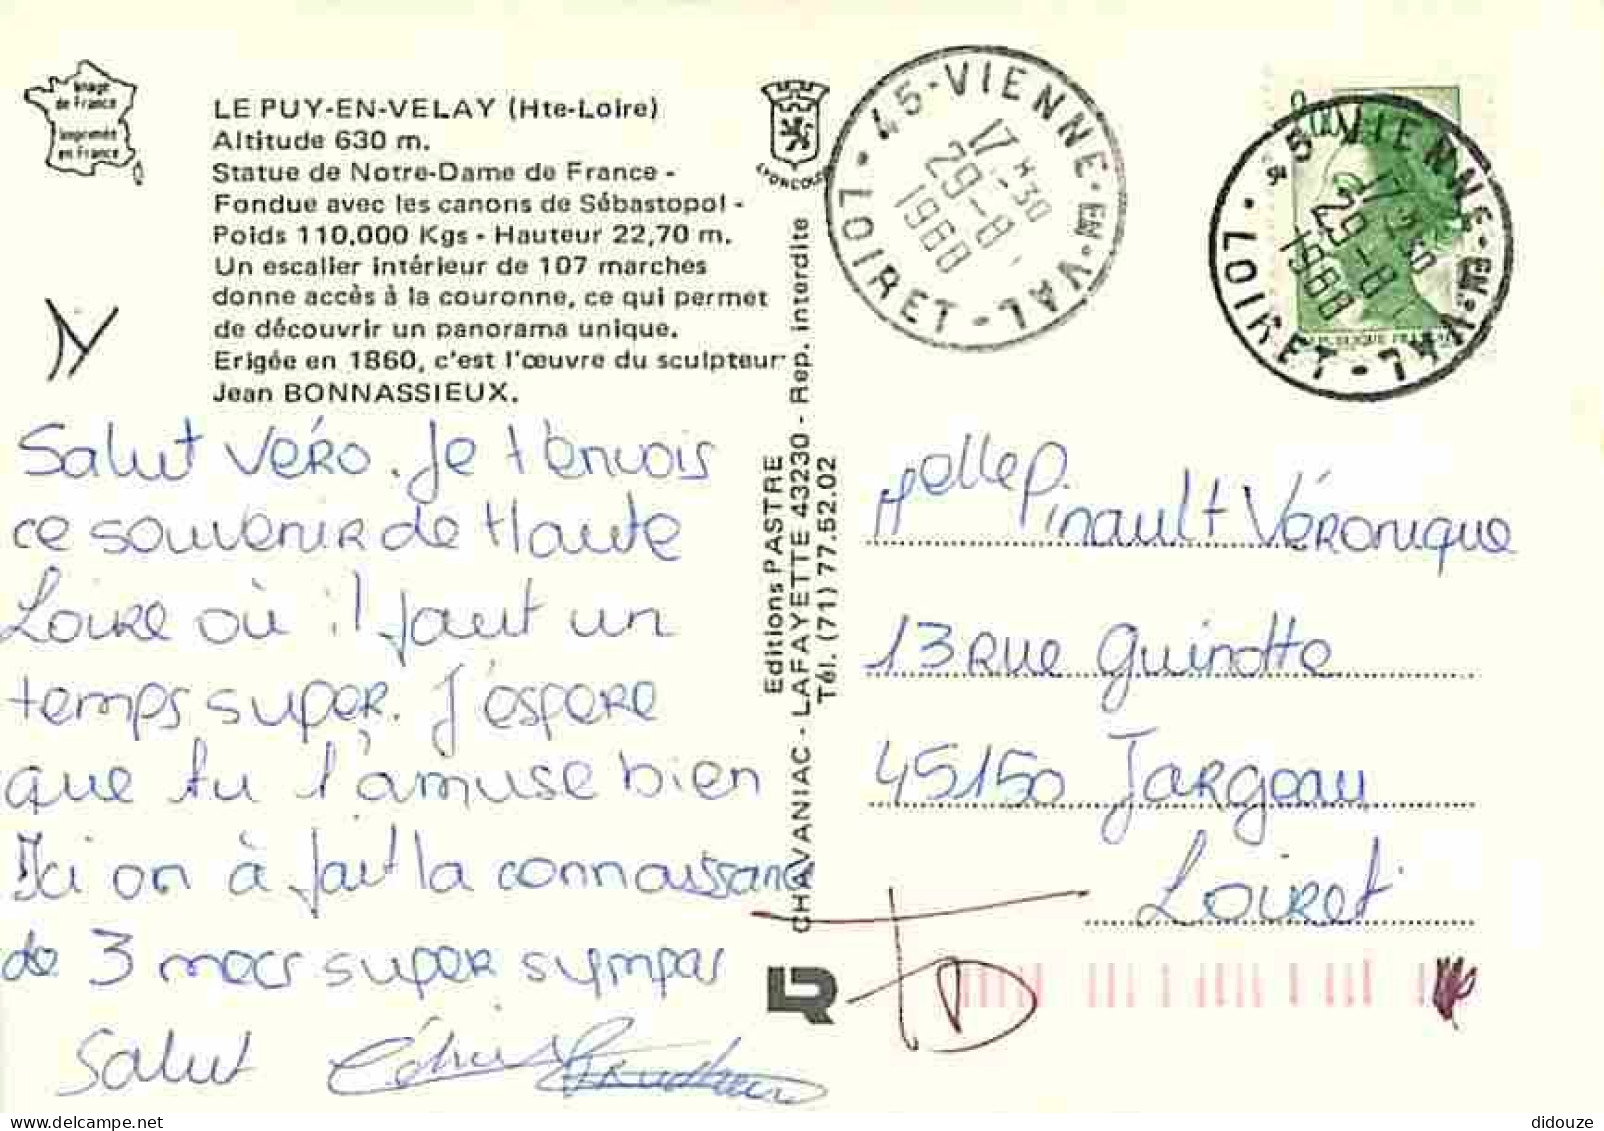 Image
de France
imprimée
en France
LE PUY-EN-VELAY (Hte-Loire)
Altitude 630 m.
Statue de Notre-Dame de France -
Fondue avec les canons de Sébastopol -
Poids 110.000 Kgs - Hauteur 22,70 m.
Un escalier intérieur de 107 marches
donne accès à la couronne, ce qui permet
de découvrir un panorama unique.
Erigée en 1860, c'est l'œuvre du sculpteur
Jean BONNASSIEUX.
Salut Véro. Je t'envois
ce souvenir de Haute
Loire où il fait un
temps super. J'espere
que tu t'amuse bien
Ici on à fait la connaissance
de 3 mecs super sympas
Salut
LYONCOLOR
Editions PASTRE
CHAVANIAC - LAFAYETTE 43230 - Rep. interdite
Tél. (71) 77.52.02
LR
45 - VIENNE - EN - VAL - LOIRET
17 H 30
29-8
1988
45 - VIENNE - EN - VAL - LOIRET
17 H 30
29-8
1988
REPUBLIQUE FRANCAISE
Melle P.
Pinault Véronique
13 Rue Guinotte
45150 Jargeau
Loiret
didouze